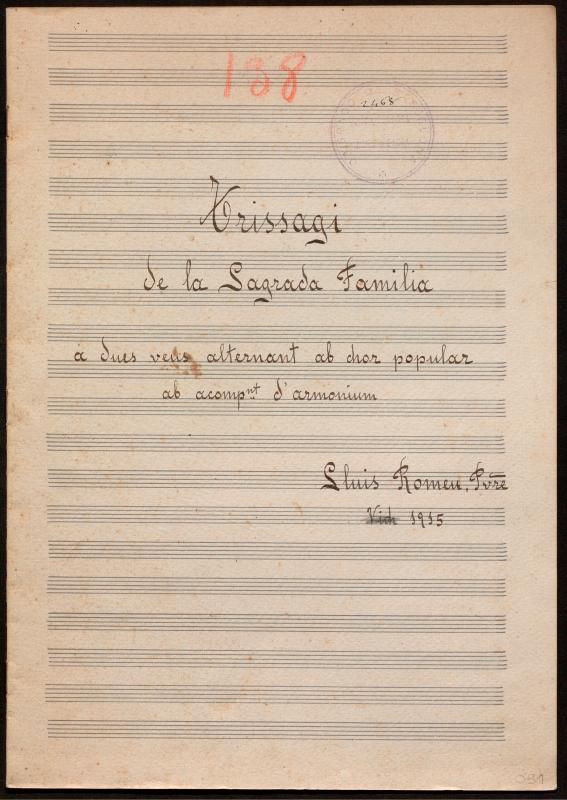 138
2468
Trissagi
de la Sagrada Familia
a dues veus alternant ab chor popular
ab acompnt d'armonium
Lluis Romeu, Pvre
Vich 1915